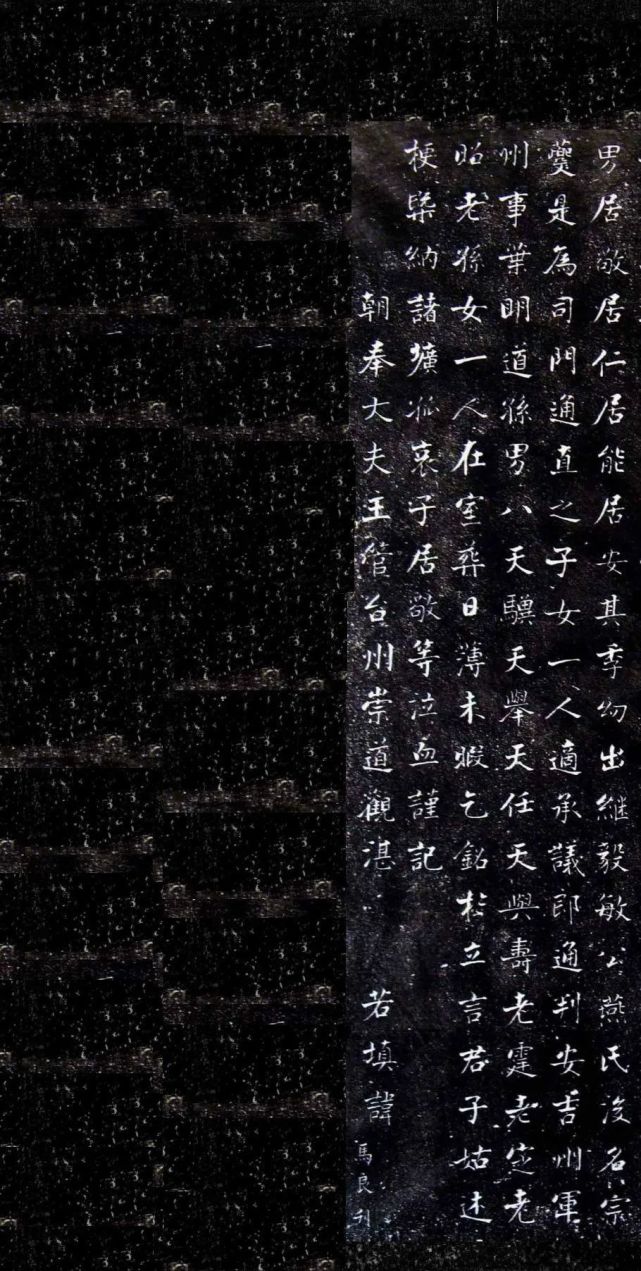 男居敬居仁居能居安其季幼出継毅敏公燕氏後名宗
夔是為司門通直之子女一人適承議郎通判安吉州軍
州事葉明道孫男八天驥天舉天任天與壽老霆老定老
昭老孫女一人在室葬日薄未暇乞銘於立言君子姑述
梗槩納諸壙孤哀子居敬等泣血謹記
朝奉大夫主管台州崇道觀湛若填諱
馬良刋